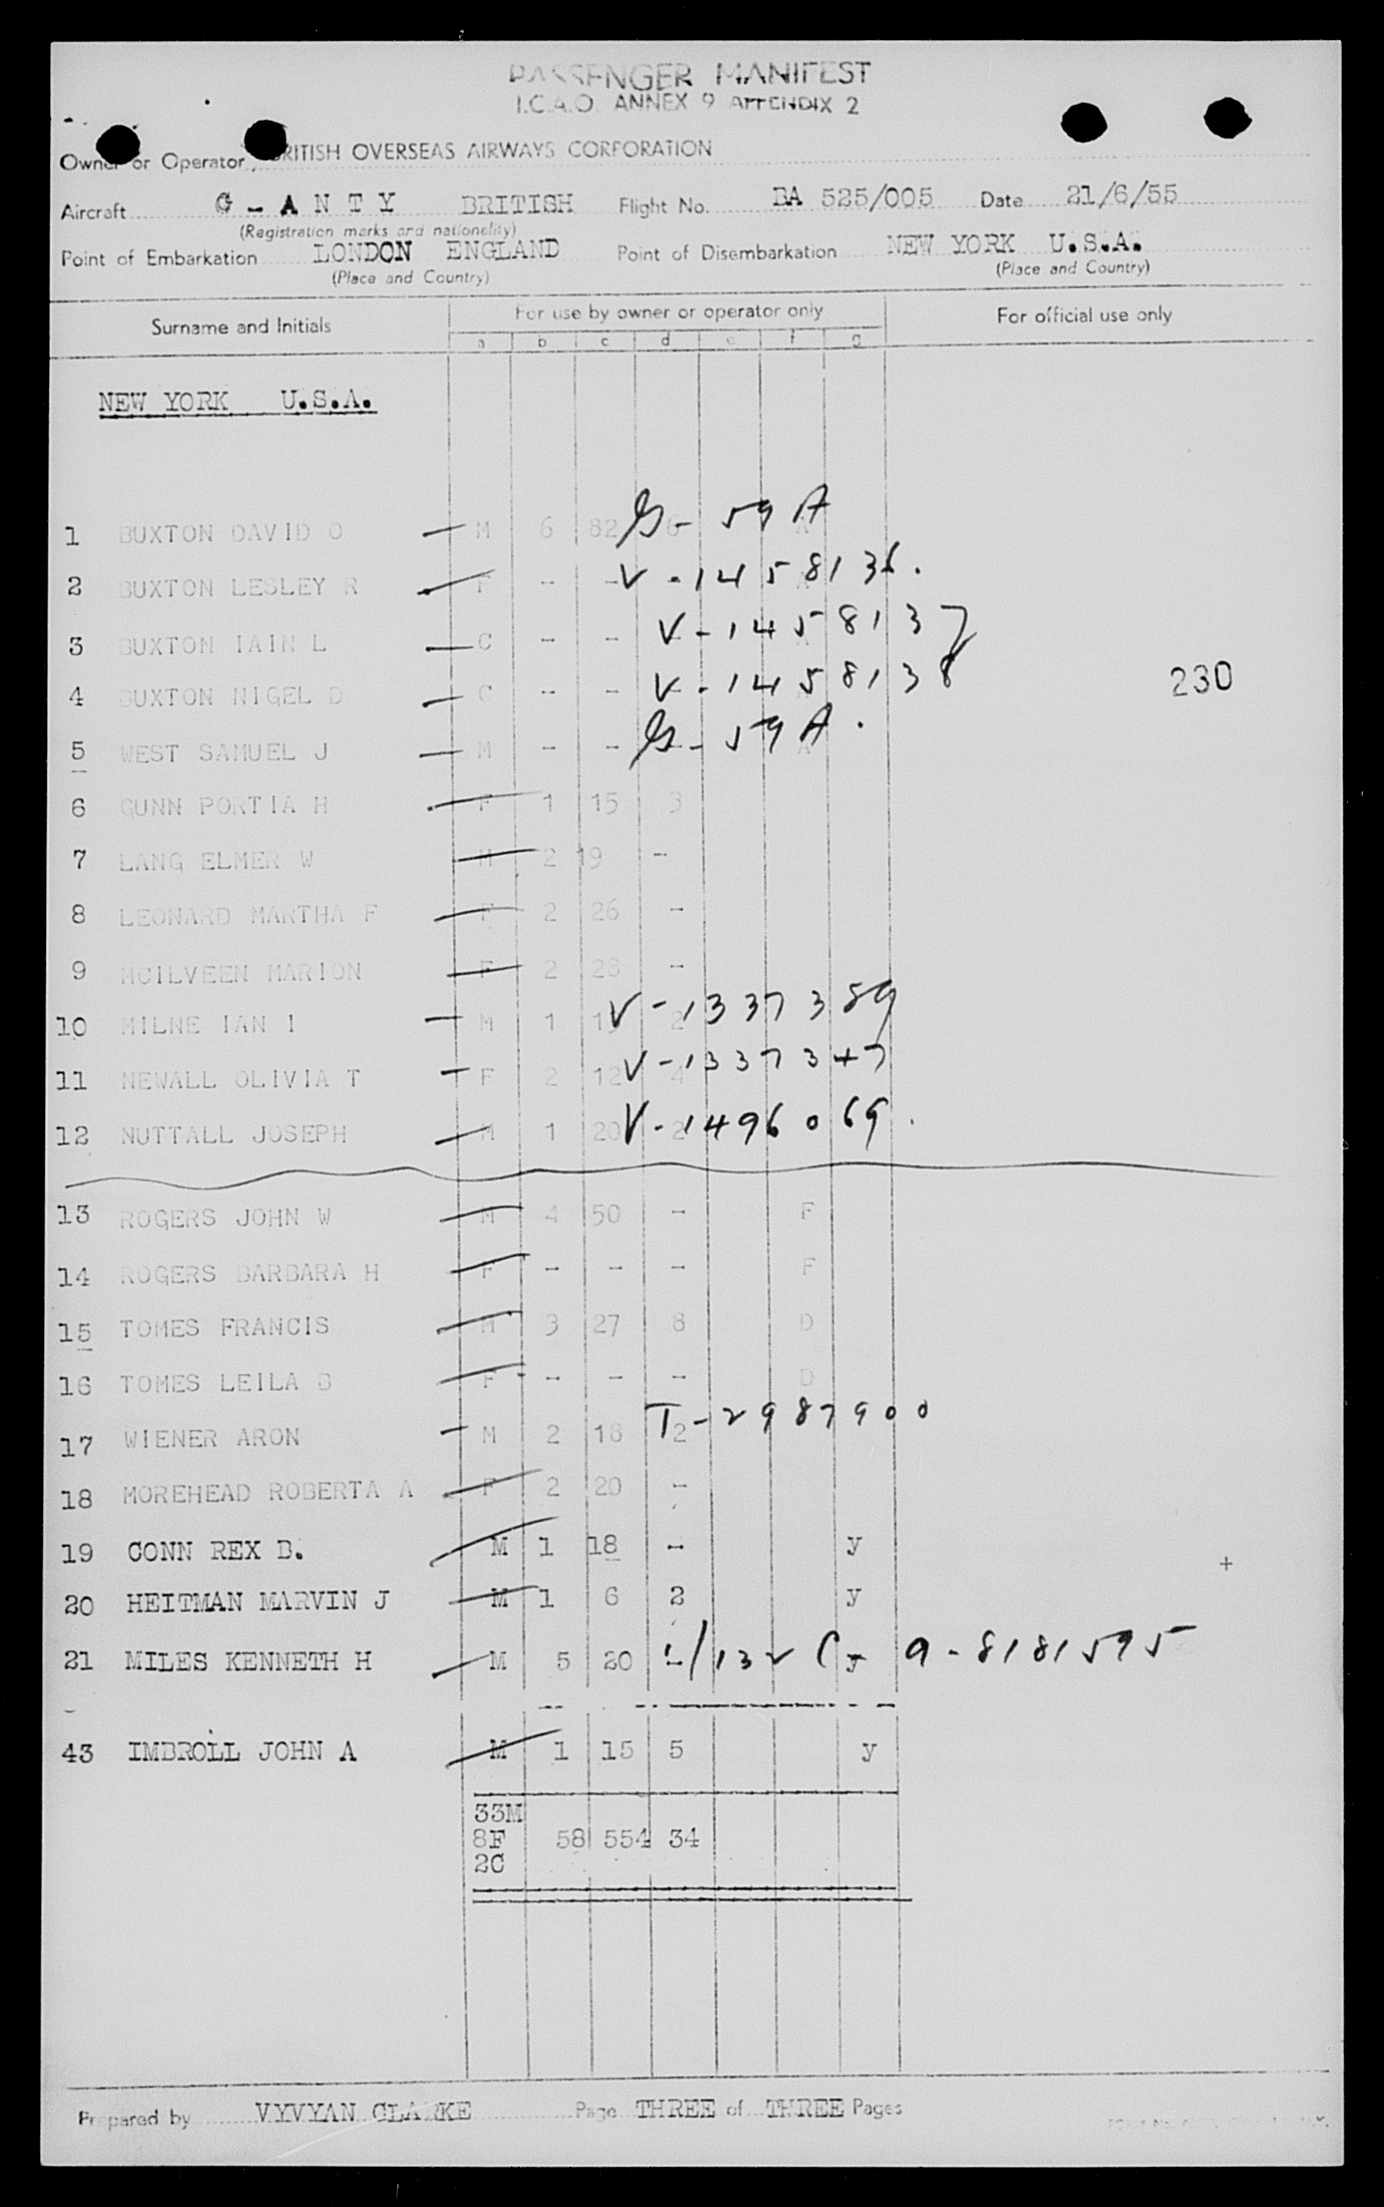 PASSENGER MANIFEST
I.C.A.O. ANNEX 9 APPENDIX 2
Owner or Operator, BRITISH OVERSEAS AIRWAYS CORPORATION
Aircraft G - A N T Y BRITISH Flight No. BA 525/005 Date 21/6/55
(Registration marks and nationality)
Point of Embarkation LONDON ENGLAND Point of Disembarkation NEW YORK U.S.A.
(Place and Country) (Place and Country)
Surname and Initials For use by owner or operator only For official use only
a b c d e f g
NEW YORK U.S.A.
1 BUXTON DAVID O M 6 82 6 G- 59 A
2 BUXTON LESLEY R F - - V-1458136.
3 BUXTON IAIN L C - - V-1458137
4 BUXTON NIGEL D C - - V-1458138 230
5 WEST SAMUEL J M - - - G-59A. A
6 GUNN PORTIA H F 1 15 3
7 LANG ELMER W M 2 19 -
8 LEONARD MARTHA F F 2 26 -
9 MCILVEEN MARION F 2 28 -
10 MILNE IAN I M 1 2 V-1337389
11 NEWALL OLIVIA T F 2 12 4 V-1337347
12 NUTTALL JOSEPH M 1 20 2 V-1496069.
13 ROGERS JOHN W M 4 50 - F
14 ROGERS BARBARA H F - - - F
15 TOMES FRANCIS M 3 27 8 D
16 TOMES LEILA B F - - - D
17 WIENER ARON M 2 18 2 T-2987900
18 MOREHEAD ROBERTA A F 2 20 -
19 CONN REX B. M 1 18 - y
20 HEITMAN MARVIN J M 1 6 2 y
21 MILES KENNETH H M 5 20 - y 9-8181595
43 IMBROLL JOHN A M 1 15 5 y
33M
8F 58 554 34
2C
Prepared by VYVYAN CLARKE Page THREE of THREE Pages